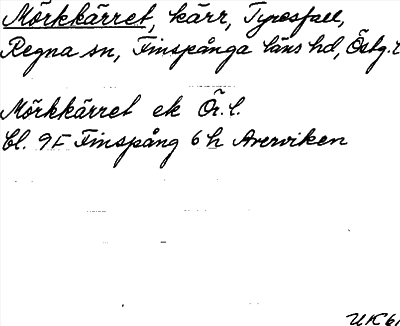 Mörkkärret, kärr, Tyrosfall,
Regna sn, Finspånga läns hd, Östg. l
Mörkkärret ek Ör. l.
bl. 9F Finspång 6h Averviken
UK 61